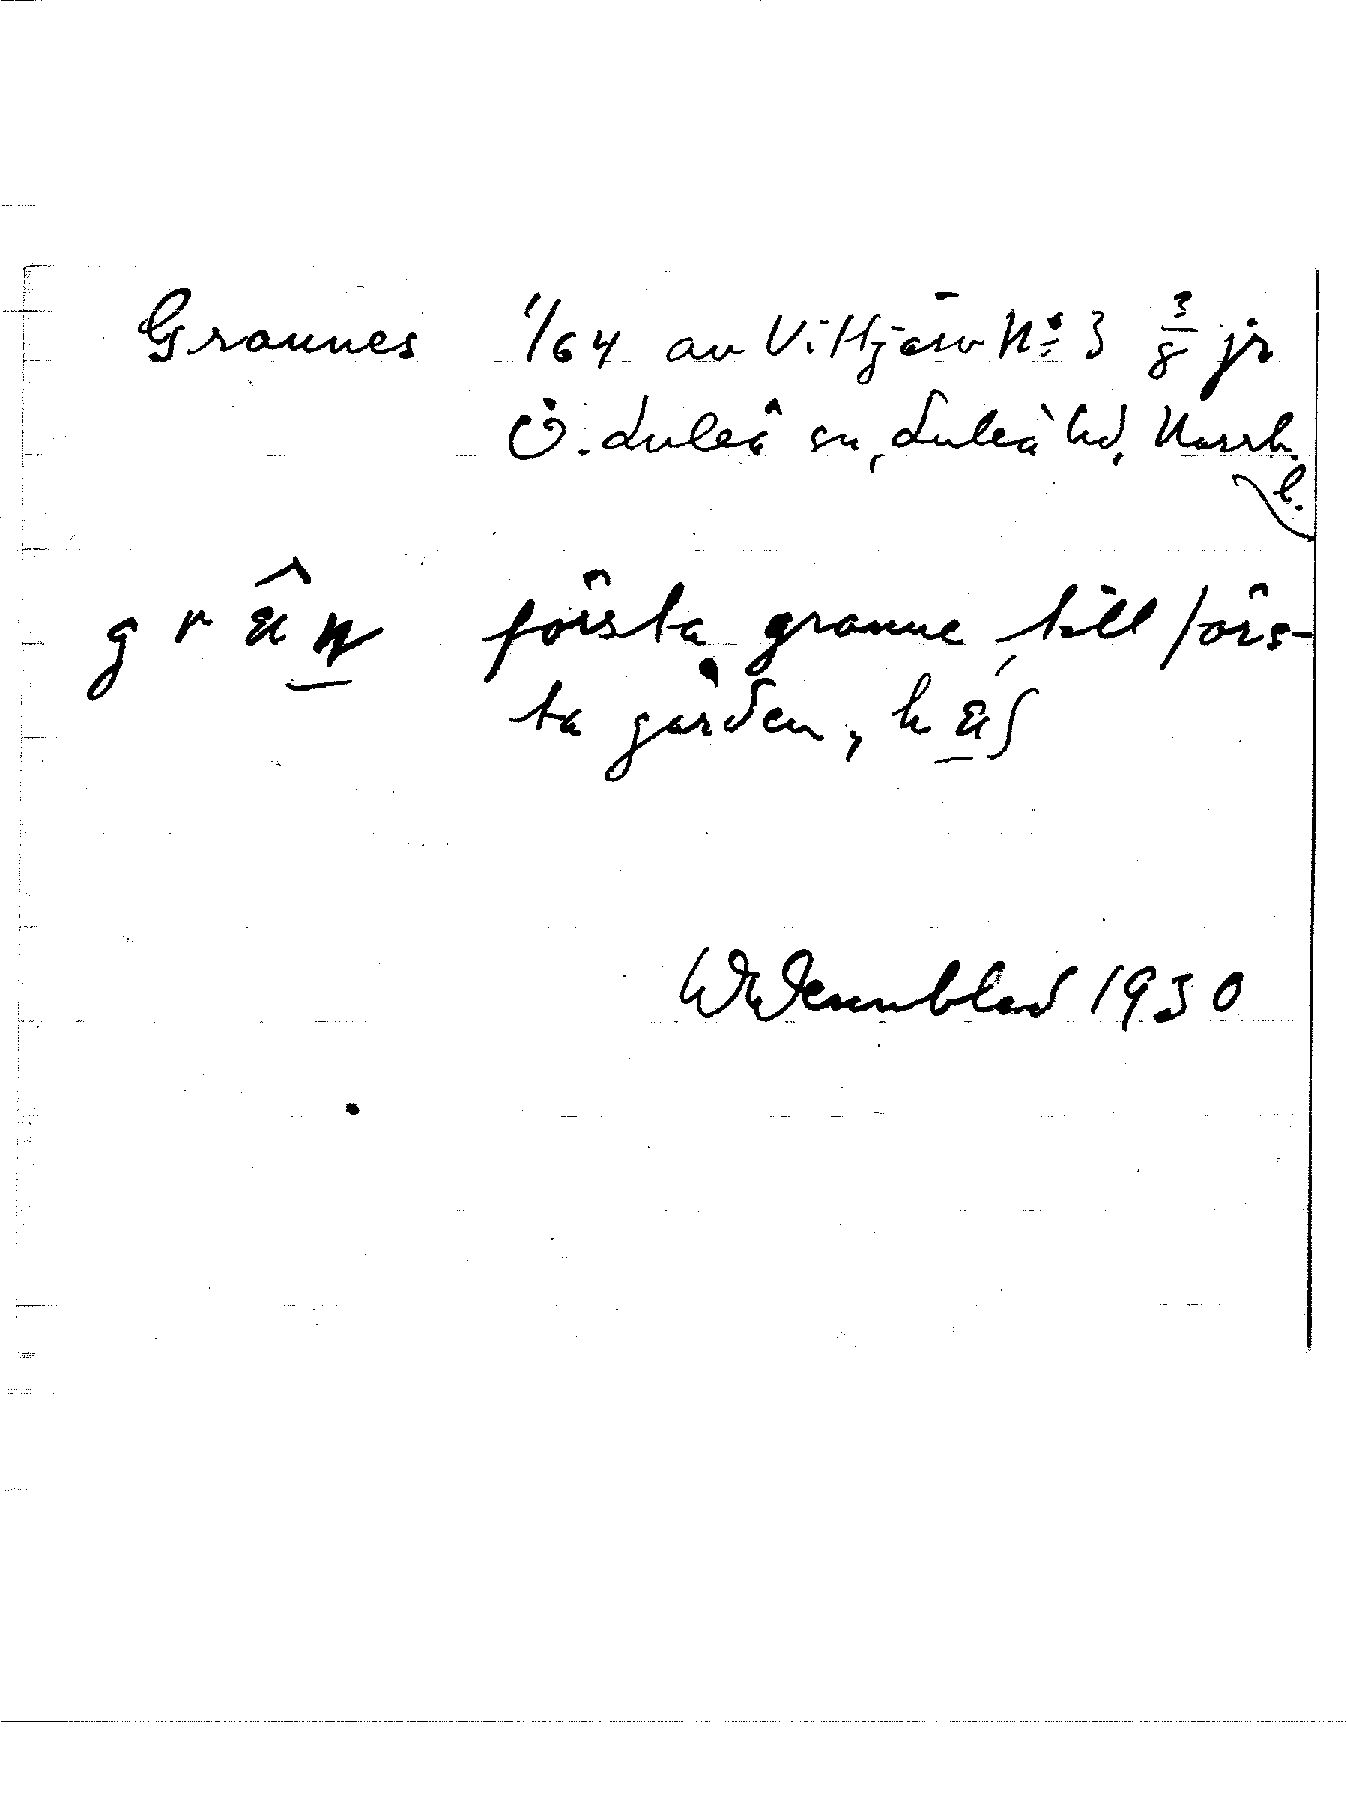 Grannes 1/64 av Vittjärv No 3 3/8 jr
Ö. Luleå sn, Luleå hd, Norrb.
l.
första granne, till förs-
ta gården,
Wennblad 1930